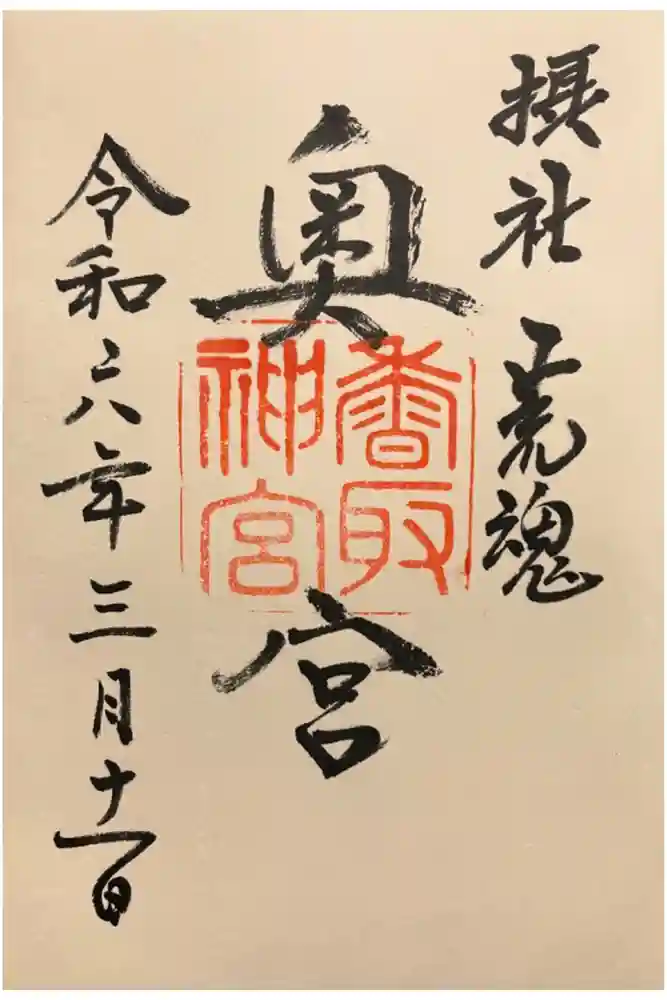 摂社 荒魂
奥宮
香取
神宮
令和六年三月十一日